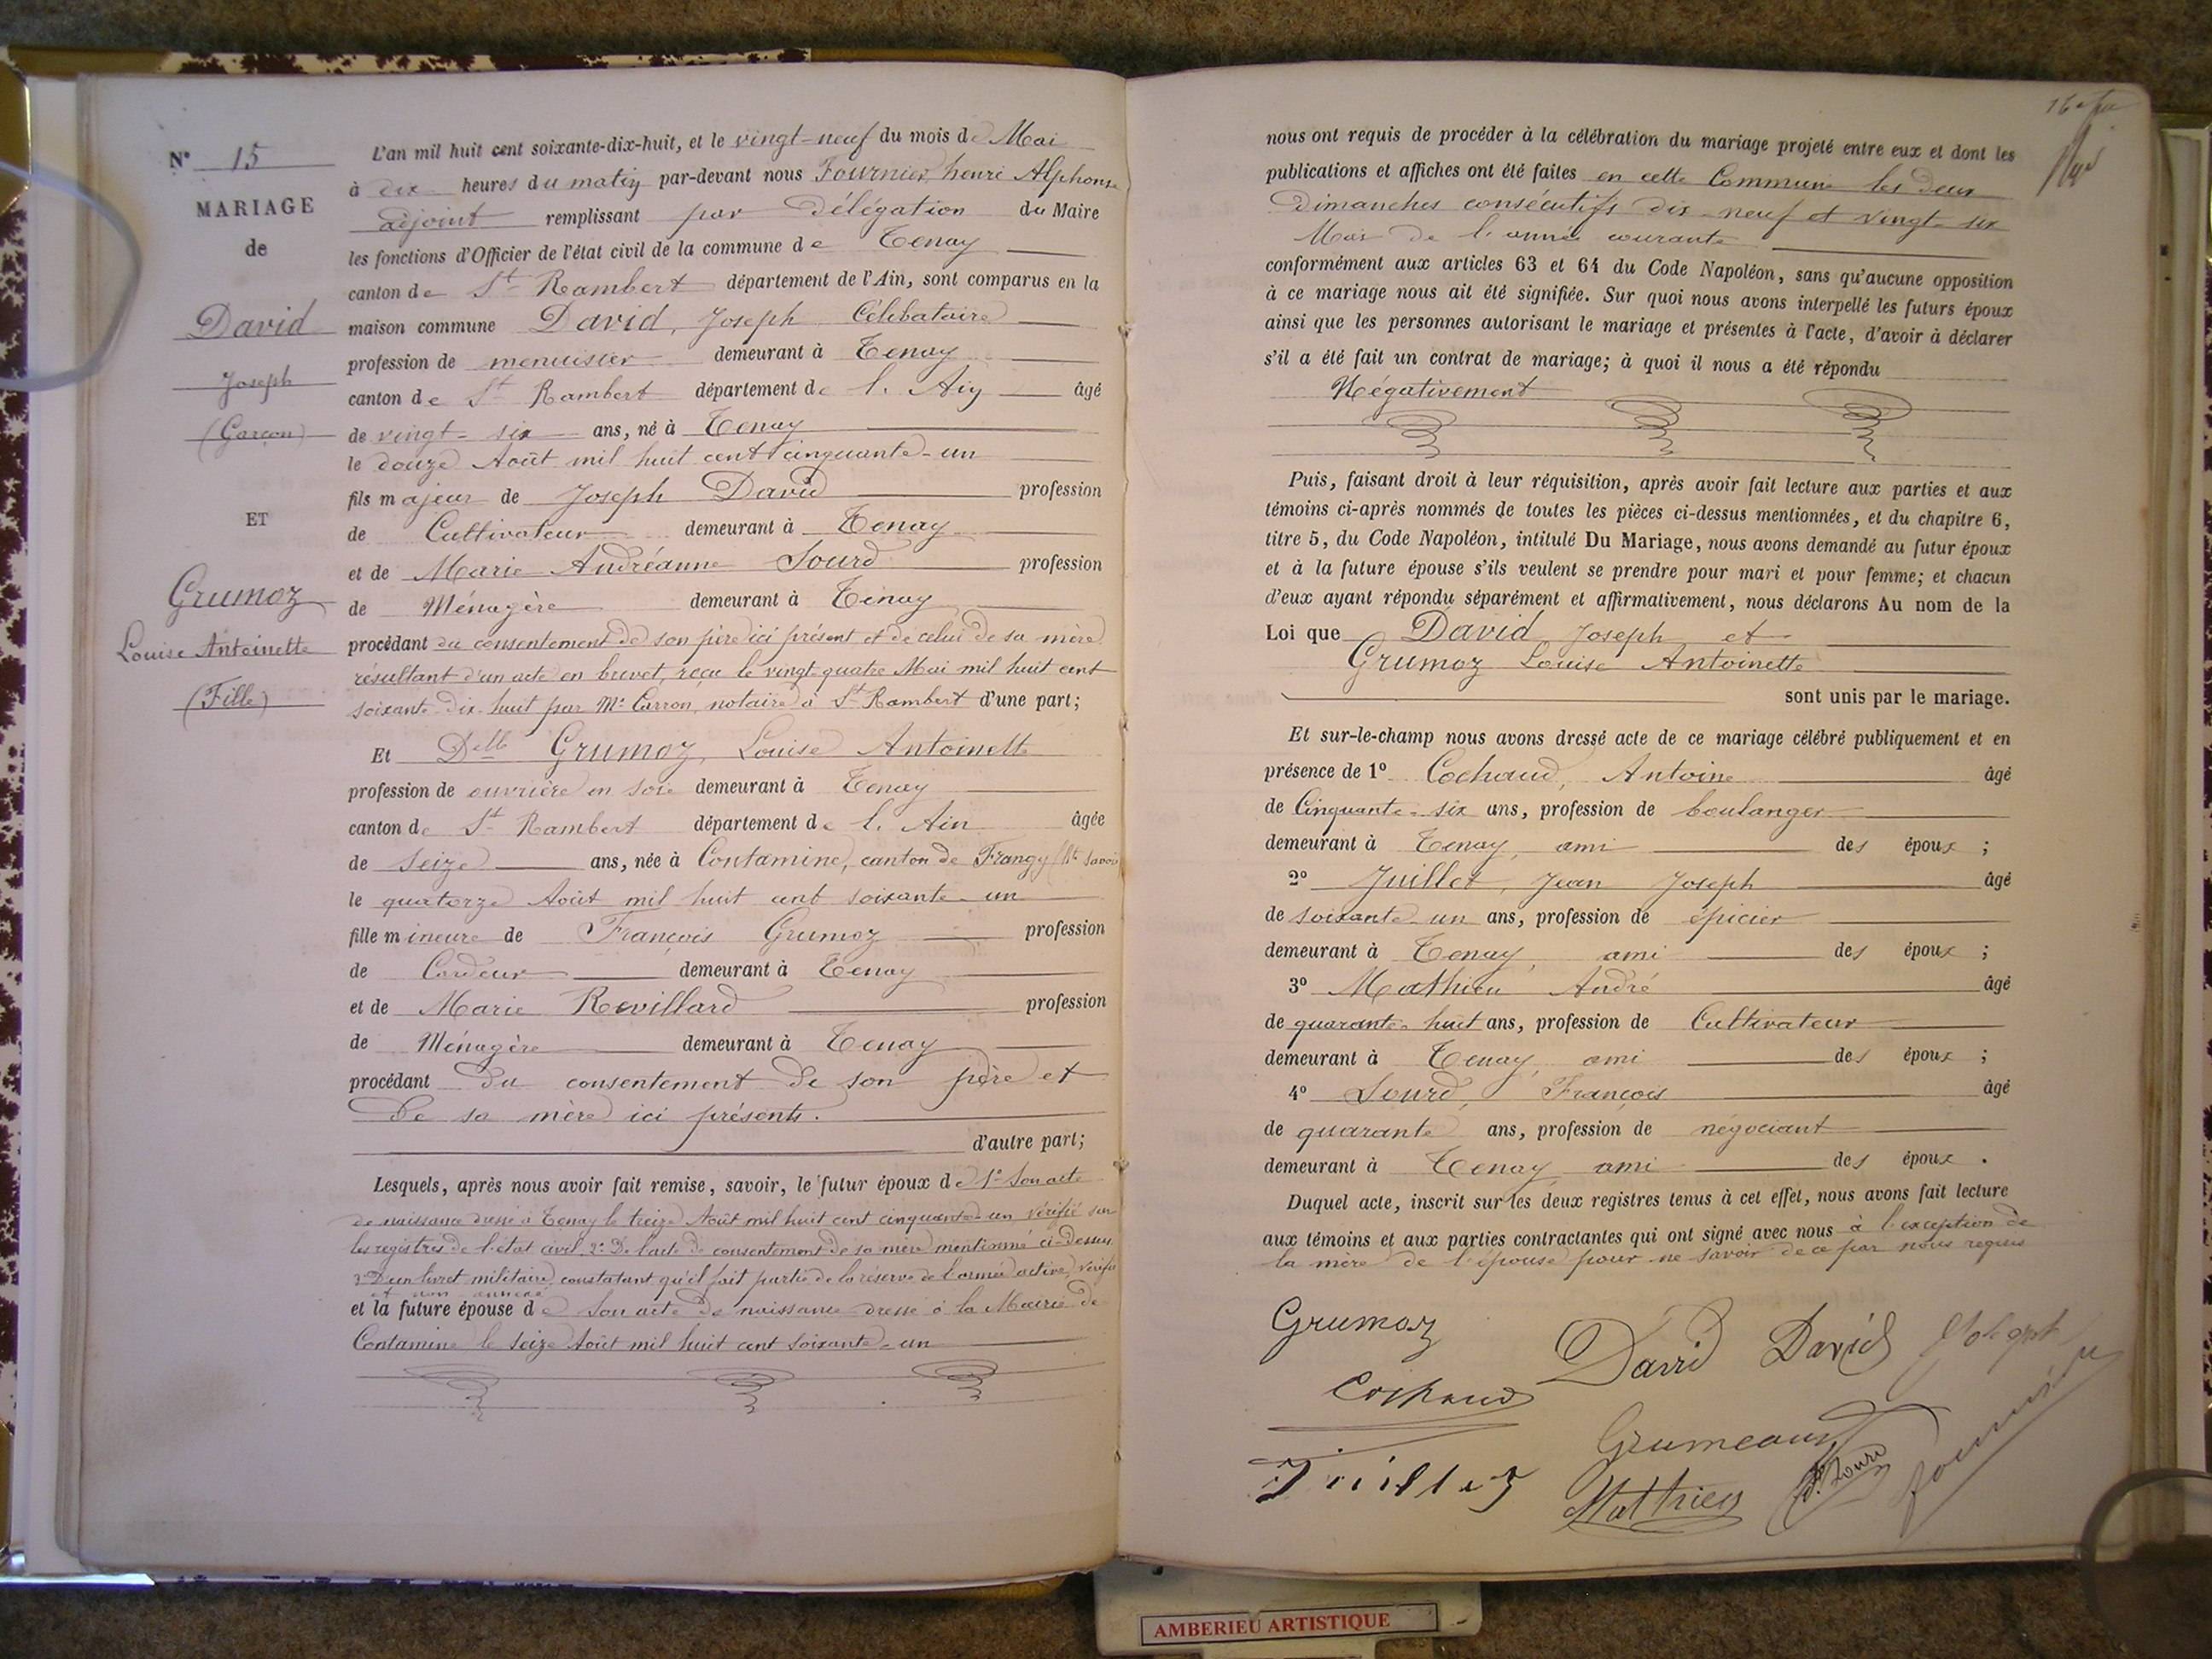 N° 15
MARIAGE
de
David
Joseph
(Garçon)
ET
Grumoz
Louise Antoinette
(Fille)
L'an mil huit cent soixante-dix-huit, et le vingt-neuf du mois de Mai
à dix heures du matin par-devant nous Fournier, henri Alphonse
adjoint remplissant par délégation du Maire
les fonctions d'Officier de l'état civil de la commune de Tenay
canton de St Rambert département de l'Ain, sont comparus en la
maison commune David, Joseph Célibataire
profession de menuisier demeurant à Tenay
canton de St Rambert département de l'Ain âgé
de vingt-six ans, né à Tenay
le douze Août mil huit cent cinquante-un
fils majeur de Joseph David profession
de Cultivateur demeurant à Tenay
et de Marie Andréanne Sourd profession
de Ménagère demeurant à Tenay
procédant du consentement de son père ici présent et de celui de sa mère
résultant d'un acte en brevet, reçu le vingt-quatre Mai mil huit cent
soixante-dix-huit par Me Carron, notaire à St Rambert d'une part;
Et Delle Grumoz, Louise Antoinette
profession de ouvrière en soie demeurant à Tenay
canton de St Rambert département de l'Ain âgée
de seize ans, née à Contamine, canton de Frangy (Hte Savoie
le quatorze Août mil huit cent soixante-un
fille mineure de François Grumoz profession
de Cardeur demeurant à Tenay
et de Marie Revillard profession
de Ménagère demeurant à Tenay
procédant du consentement de son père et
de sa mère ici présents.
d'autre part;
Lesquels, après nous avoir fait remise, savoir, le futur époux de 1° Son acte
de naissance dressé à Tenay le treize Août mil huit cent cinquante-un vérifié sur
les registres de l'état civil, 2° De l'acte de consentement de sa mère mentionné ci-dessus
3° D'un livret militaire, constatant qu'il fait partie de la réserve de l'armée active, vérifié
et non annexé
et la future épouse de Son acte de naissance dressé à la Mairie de
Contamine le seize Août mil huit cent soixante-un
nous ont requis de procéder à la célébration du mariage projeté entre eux et dont les
publications et affiches ont été faites en cette Commune les deux
Dimanches consécutifs dix-neuf et vingt-six
Mai de l'année courante
conformément aux articles 63 et 64 du Code Napoléon, sans qu'aucune opposition
à ce mariage nous ait été signifiée. Sur quoi nous avons interpellé les futurs époux
ainsi que les personnes autorisant le mariage et présentes à l'acte, d'avoir à déclarer
s'il a été fait un contrat de mariage; à quoi il nous a été répondu
Négativement
Puis, faisant droit à leur réquisition, après avoir fait lecture aux parties et aux
témoins ci-après nommés de toutes les pièces ci-dessus mentionnées, et du chapitre 6,
titre 5, du Code Napoléon, intitulé Du Mariage, nous avons demandé au futur époux
et à la future épouse s'ils veulent se prendre pour mari et pour femme; et chacun
d'eux ayant répondu séparément et affirmativement, nous déclarons Au nom de la
Loi que David Joseph et
Grumoz Louise Antoinette
sont unis par le mariage.
Et sur-le-champ nous avons dressé acte de ce mariage célébré publiquement et en
présence de 1° Cochaud, Antoine âgé
de Cinquante-six ans, profession de boulanger
demeurant à Tenay, ami des époux ;
2° Juillet, Jean Joseph âgé
de soixante-un ans, profession de épicier
demeurant à Tenay, ami des époux ;
3° Mathieu André âgé
de quarante-huit ans, profession de Cultivateur
demeurant à Tenay, ami des époux ;
4° Sourd, François âgé
de quarante ans, profession de négociant
demeurant à Tenay ami des époux .
Duquel acte, inscrit sur les deux registres tenus à cet effet, nous avons fait lecture
aux témoins et aux parties contractantes qui ont signé avec nous à l'exception de
la mère de l'épouse pour ne savoir de ce par nous requis
Grumoz
David David Joseph
Cochaud
Grumeaux
Juillet
Matthieu
Fr Sourd
Fournier
AMBERIEU ARTISTIQUE